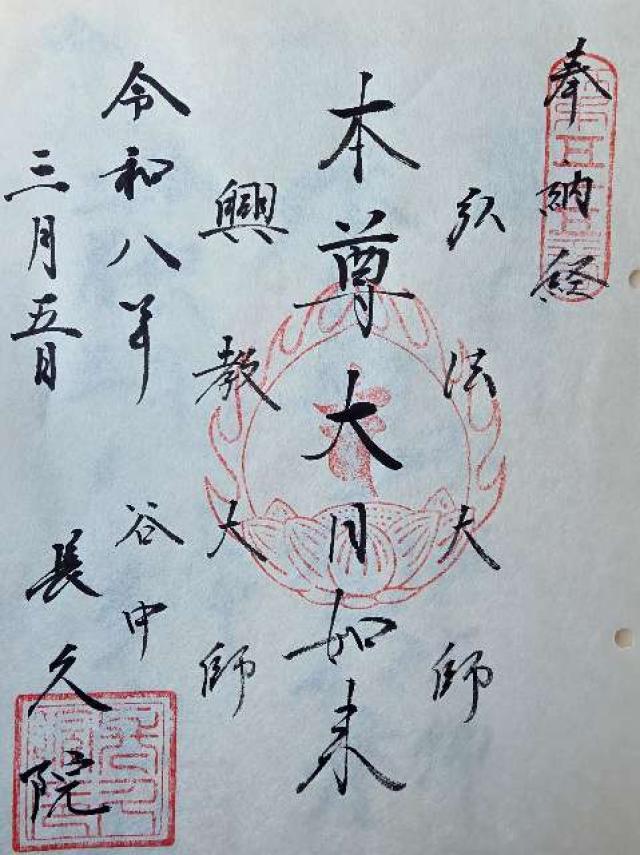 奉納経
弘法大師
本尊大日如来
興教大師
令和八年
三月五日
谷中
長久院